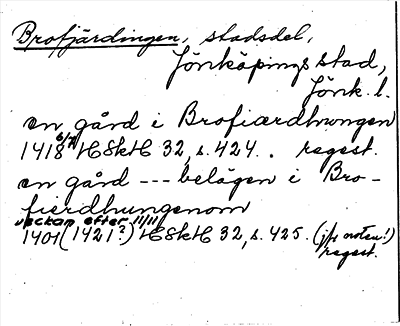 Brofjärdingen, stadsdel,
Jönköpings stad,
Jönk. l.
en gård i Brofiærdhungen
1418 6/7 HSkH 32, s. 424. . regest.
en gård --- belägen i Bro-
fierdhungenom
veckan efter 11/11
1401 (1421?) HSkH 32, s. 425. (jfr noten!)
regest.